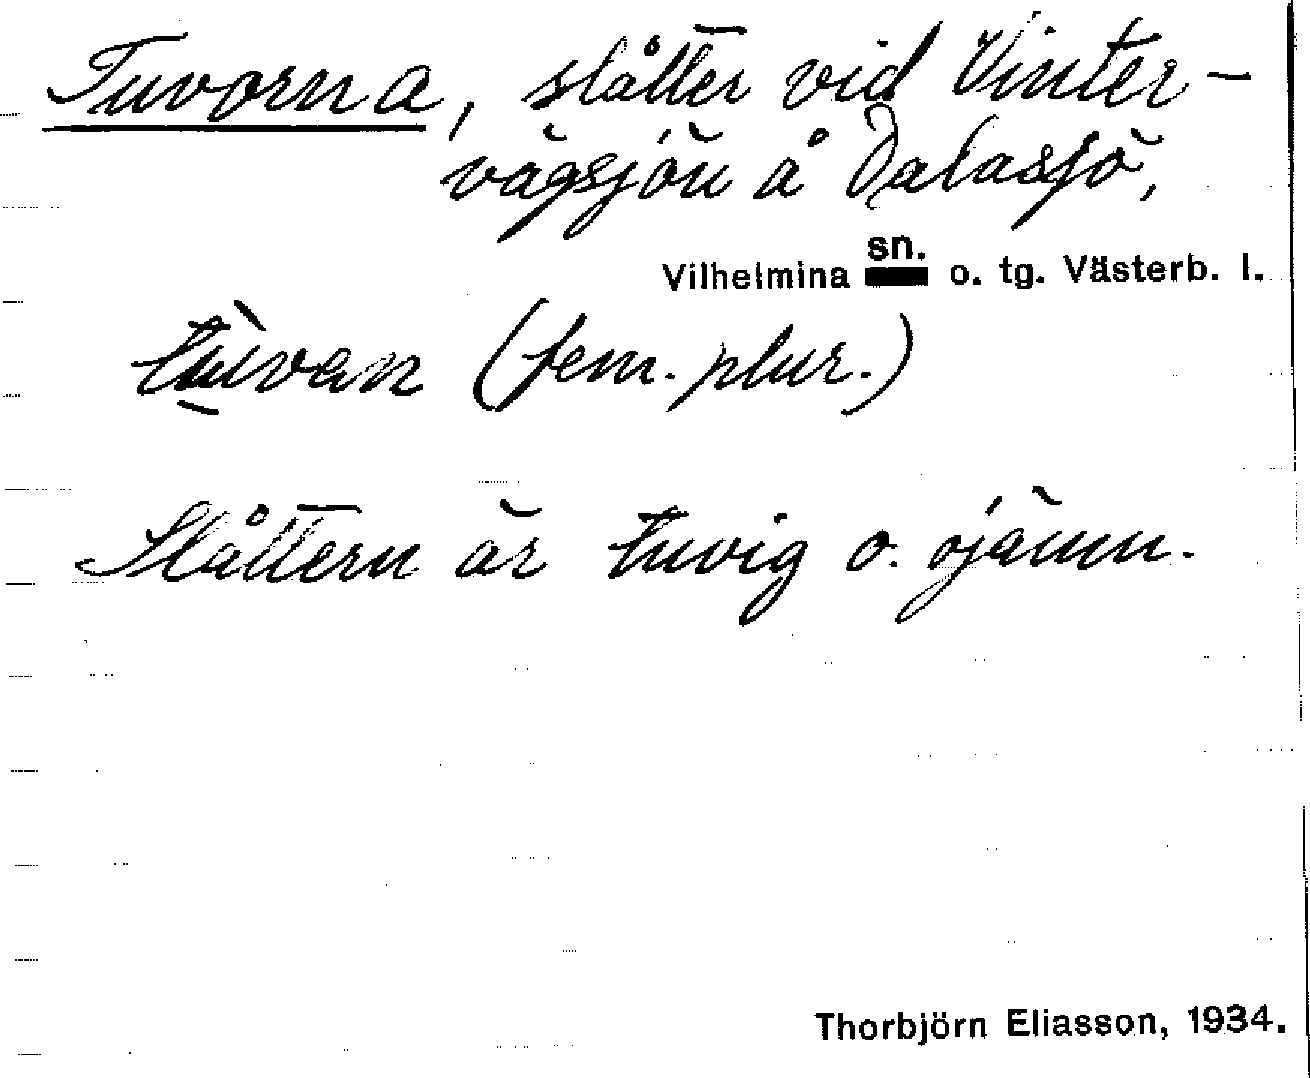 Tuvorna, slåtter vid Vinter-
vägsjön å Dalasjö,
Vilhelmina sn. o. tg. Västerb. l.
tùvan (fem. plur.)
Slåttern är tuvig o. ojämn.
Thorbjörn Eliasson, 1934.